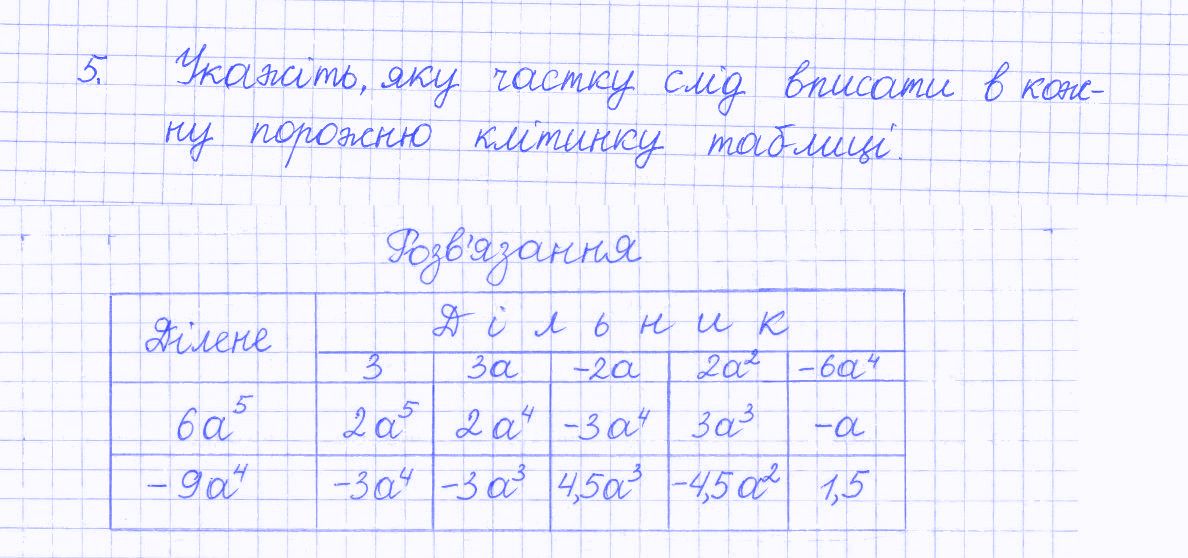 5. Укажіть, яку частку слід вписати в кож-
ну порожню клітинку таблиці.
Розв'язання
Ділене Дільник
3 3a -2a 2a² -6a⁴
6a⁵ 2a⁵ 2a⁴ -3a⁴ 3a³ -a
-9a⁴ -3a⁴ -3a³ 4,5a³ -4,5a² 1,5